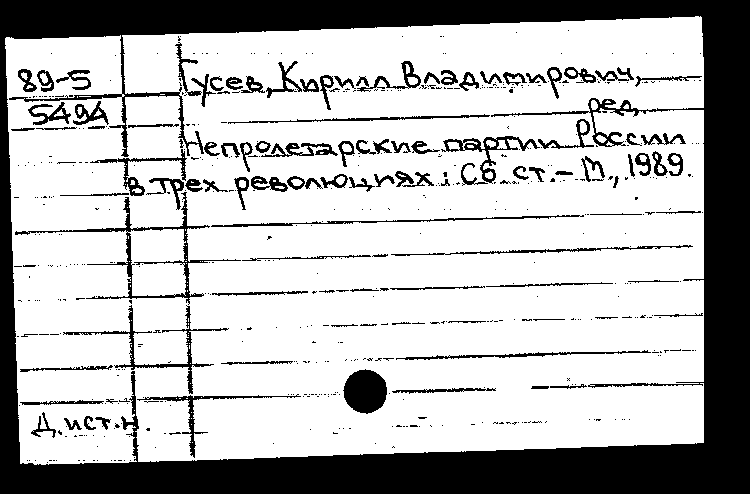 89-5
5494
Гусев, Кирилл Владимирович,
ред.
Непролетарские партии России
в трех революциях: Сб. ст. – М., 1989.
Д.ист.н.